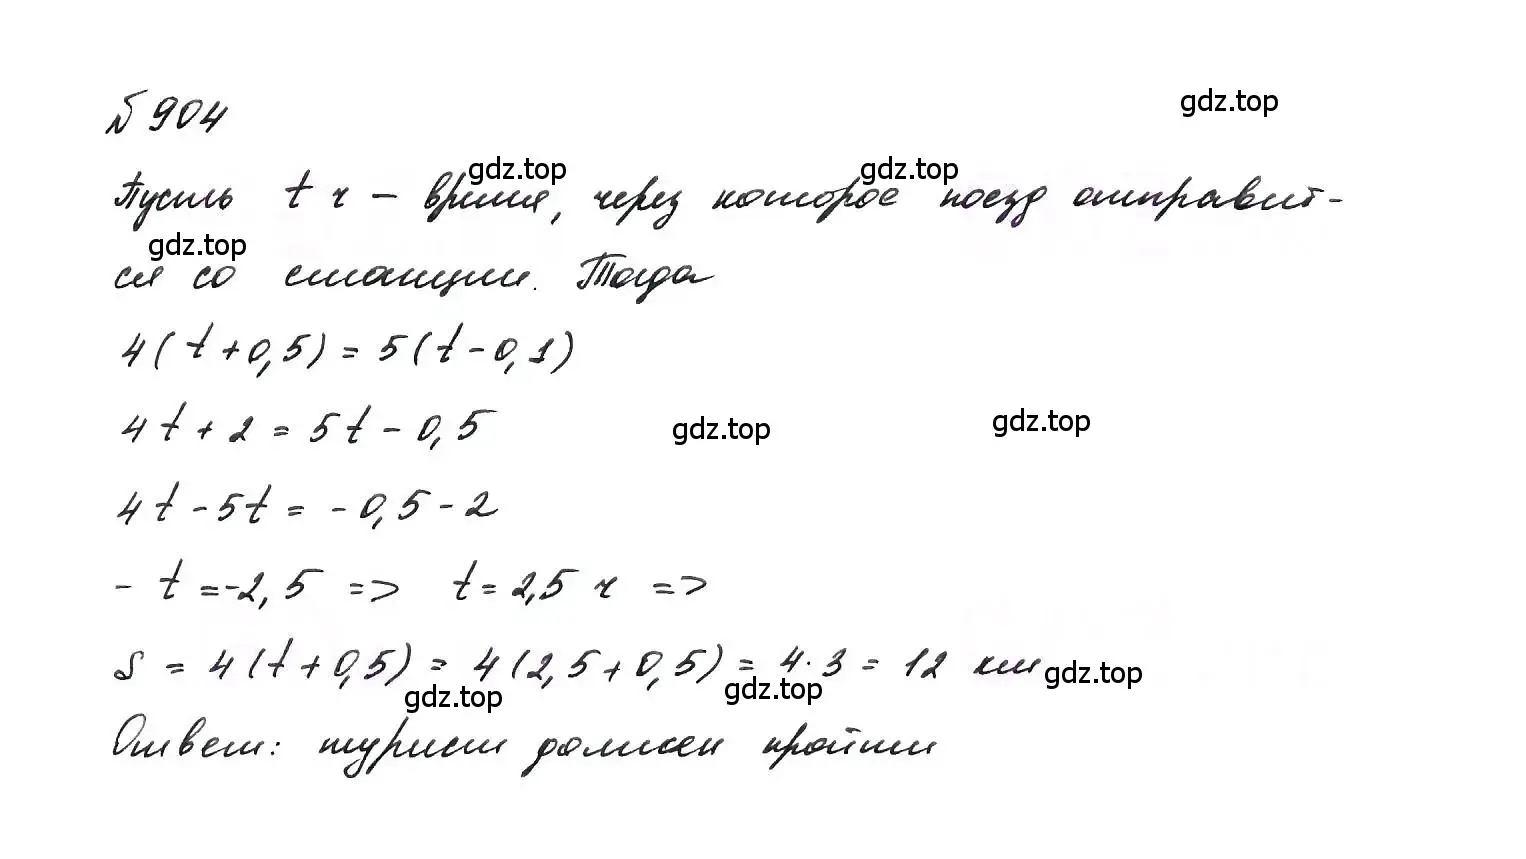 №904
gdz.top
gdz.top
gdz.top
Пусть t ч – время, через которое поезд отправит-
gdz.top
ся со станции. Тогда
4(t+0,5)=5(t-0,1)
4t+2=5t-0,5
gdz.top
gdz.top
4t-5t=-0,5-2
-t=-2,5 => t=2,5 ч =>
S=4(t+0,5)=4(2,5+0,5)=4·3=12 км
gdz.top
gdz.top
gdz.top
Ответ: турист должен пройти